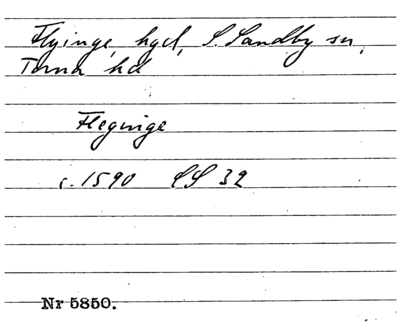 Flyinge, hgd, S. Sandby sn,
Torna hd
Fleginge
c. 1590 SS 32
Nr 5850.